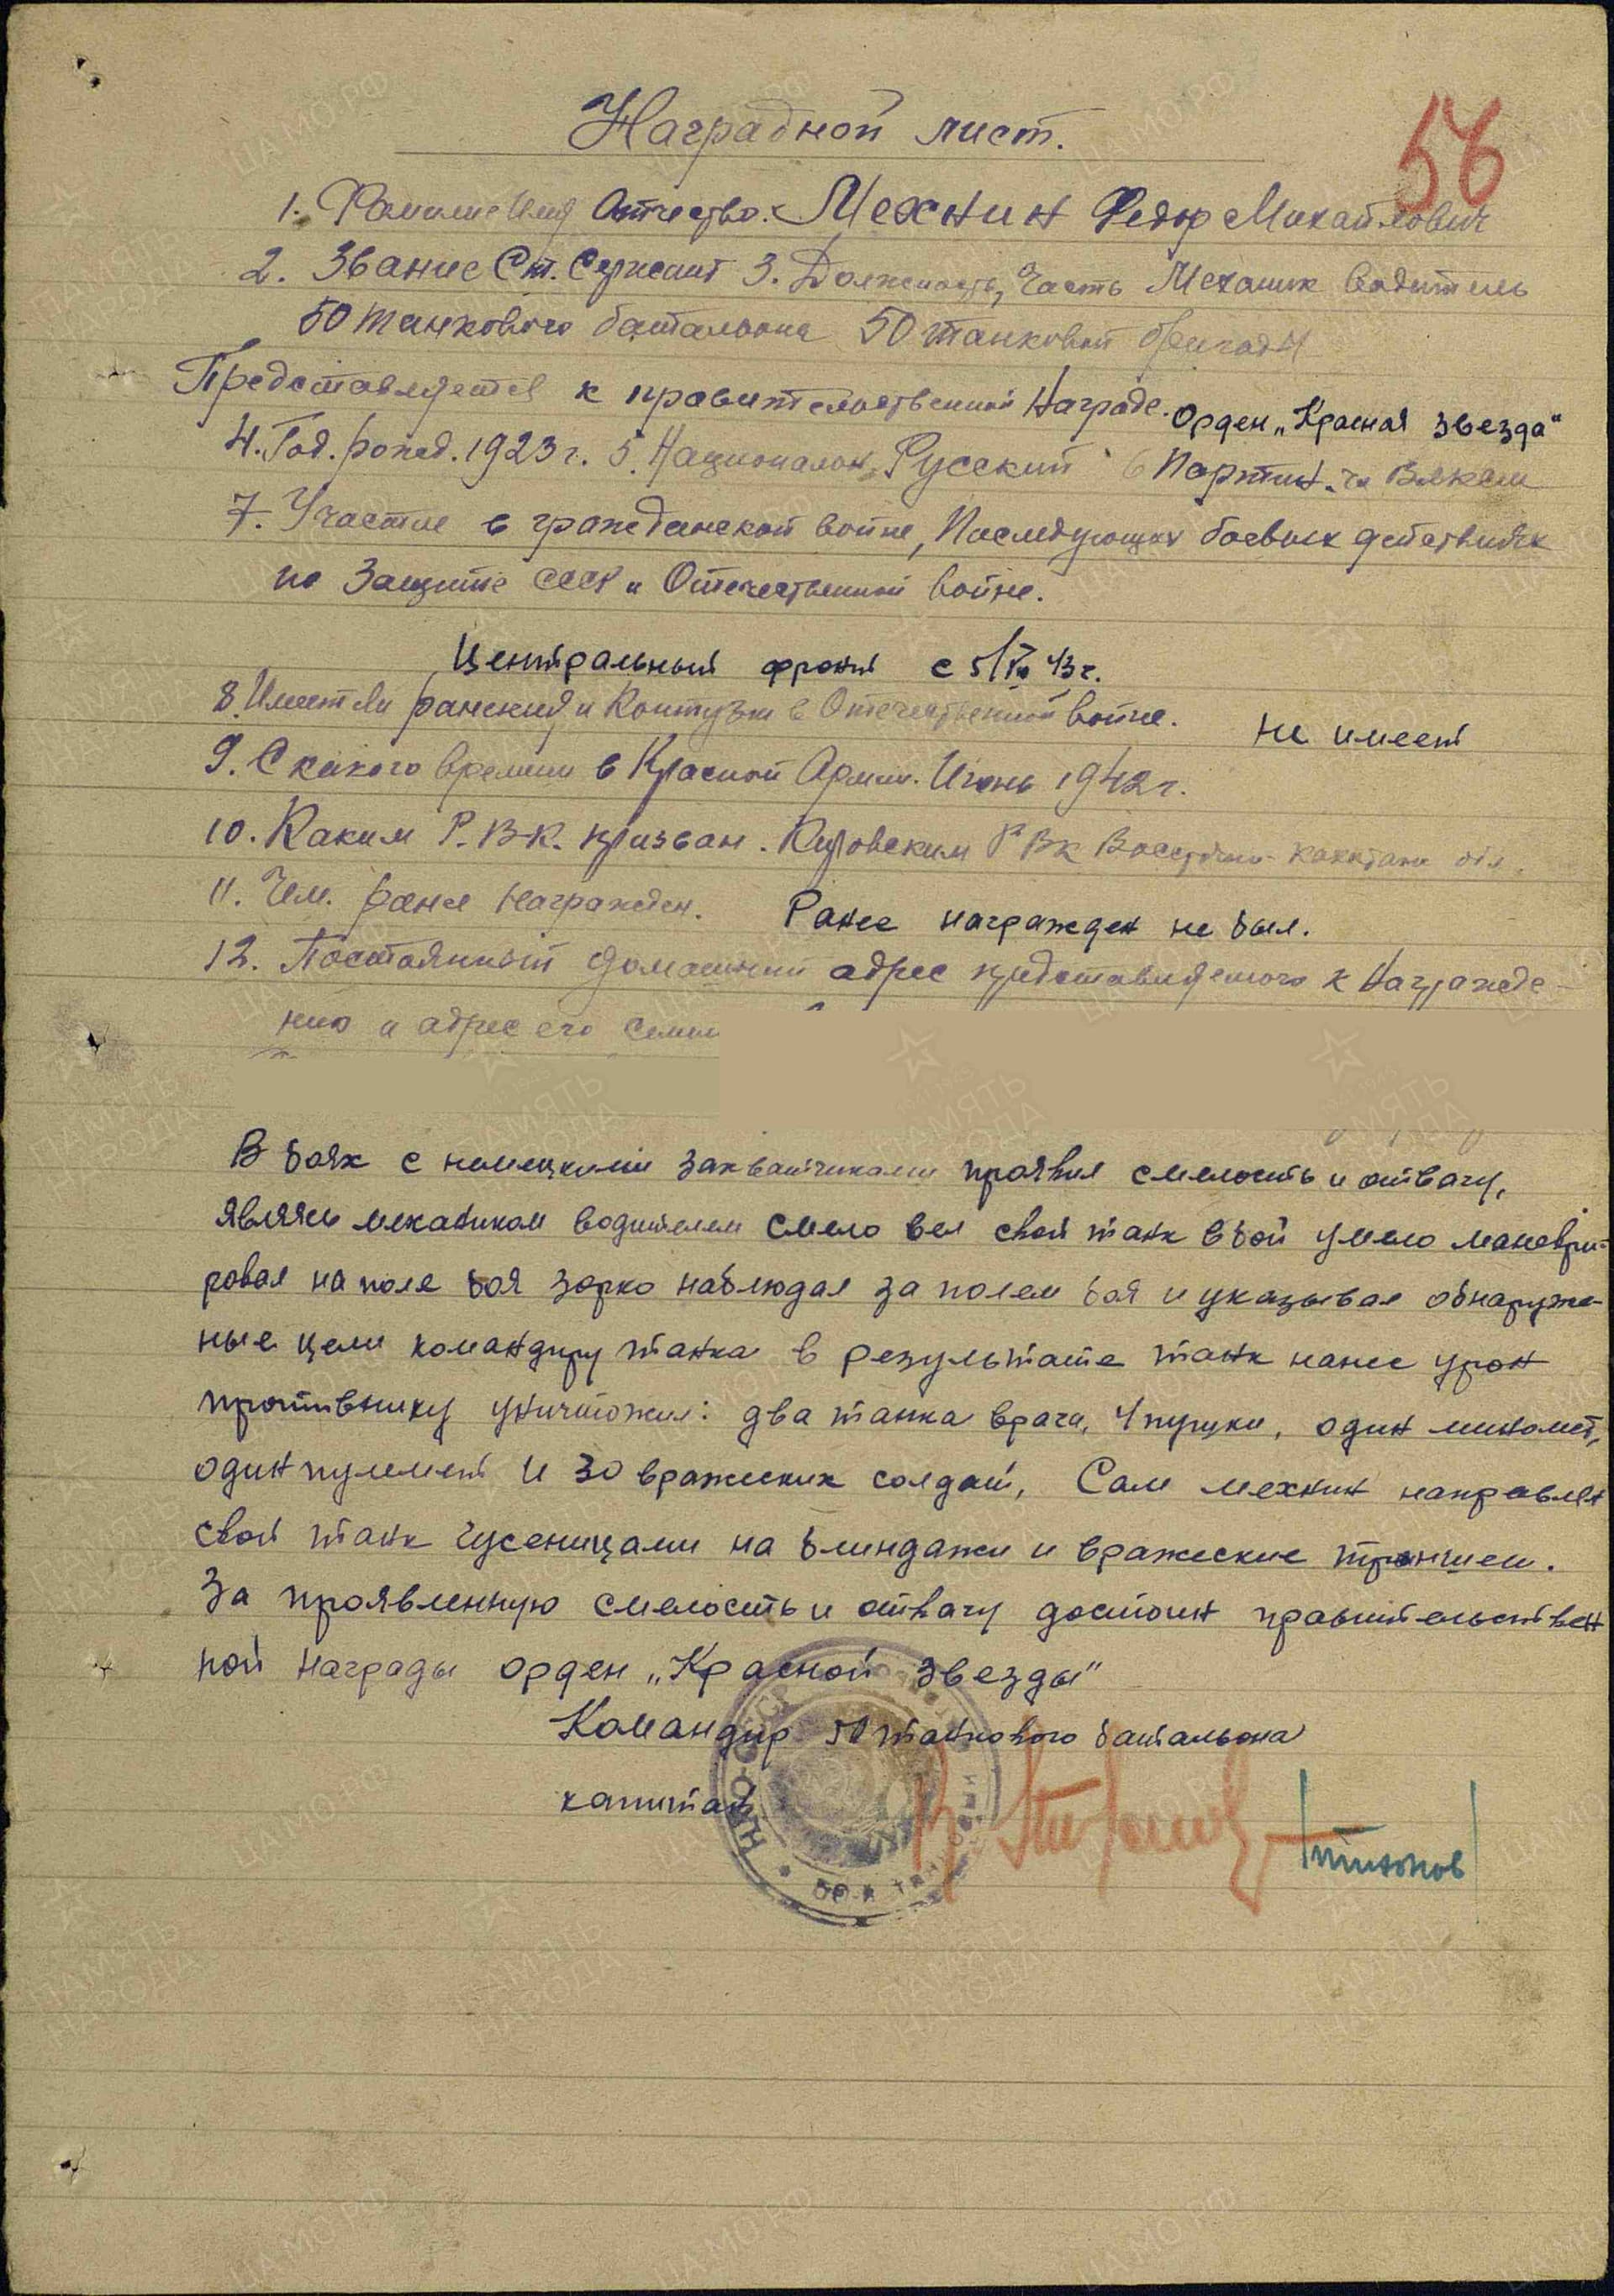 56
Наградной лист.
1. Фамилие Имя Отчество. Мехнин Федор Михайлович
2. Звание Ст. Сержант 3. Должность, Часть Механик Водитель
50 танкового батальона 50 танковой бригады
Представляется к правительственной Награде. Орден „Красная звезда“
4. Год. рожд. 1923 г. 5. Националн. Русский 6 Партийн. чл Влксм
7. Участие в гражданской войне, Последующих боевых действиях
по Защите СССР и Отечественной войне.
Центральный фронт с 5/ 43 г.
8. Имеет ли ранения и Контузии в Отечественной войне. не имеет
9. С какого времени в Красной Армии. Июнь 1942 г.
10. Каким Р.В.К. призван. Кировским РВК Восточно-казахстанс обл.
11. Чем. ранее награжден. Ранее награжден не был.
12. Постоянный домашний адрес представляемого к Награжде-
нию и адрес его семьи
В боях с немецкими захватчиками проявил смелость и отвагу,
являясь механиком водителем смело вел свой танк в бой умело маневри-
ровал на поле боя зорко наблюдал за полем боя и указывал обнаруже-
ные цели командиру танка в результате танк нанес урон
противнику уничтожил: два танка врага, 4 пушки, один миномет,
один пулемет и 30 вражеских солдат, Сам мехнин направлял
свой танк гусеницами на блиндажи и вражеские траншеи.
За проявленную смелость и отвагу достоин правительствен
ной награды орден „Красной звезды“
Командир 50 танкового батальона
капитан